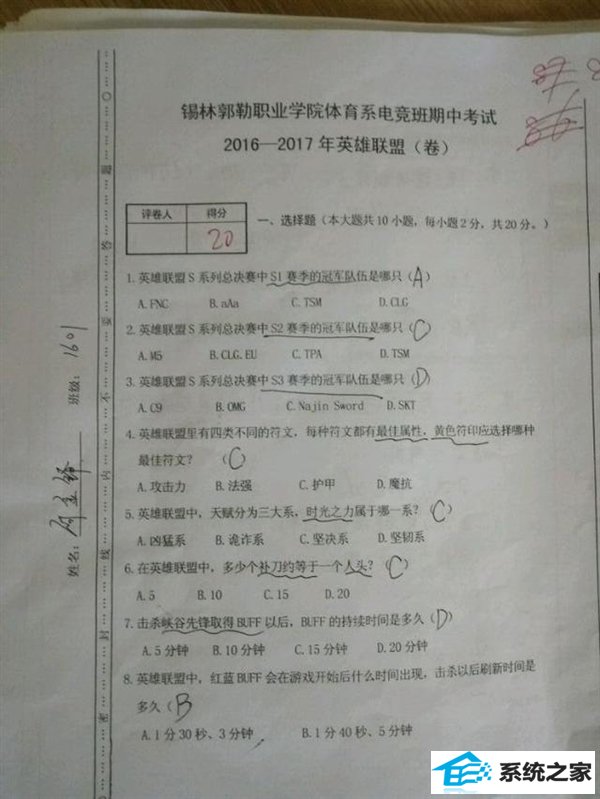 锡林郭勒职业学院体育系电竞班期中考试
2016—2017 年英雄联盟（卷）
评卷人 得分
20
一、选择题（本大题共 10 小题，每小题 2 分，共 20 分。）
1. 英雄联盟 S 系列总决赛中 S1 赛季的冠军队伍是哪只（A）
A. FNC B. aAa C. TSM D. CLG
2. 英雄联盟 S 系列总决赛中 S2 赛季的冠军队伍是哪只（C）
A. M5 B. CLG. EU C. TPA D. TSM
3. 英雄联盟 S 系列总决赛中 S3 赛季的冠军队伍是哪只（D）
A. C9 B. OMG C. Najin Sword D. SKT
4. 英雄联盟里有四类不同的符文，每种符文都有最佳属性，黄色符印应选择哪种
最佳符文？ （C）
A. 攻击力 B. 法强 C. 护甲 D. 魔抗
5. 英雄联盟中，天赋分为三大系，时光之力属于哪一系？（C）
A. 凶猛系 B. 诡诈系 C. 坚决系 D. 坚韧系
6. 在英雄联盟中，多少个补刀约等于一个人头？（C）
A. 5 B. 10 C. 15 D. 20
7. 击杀峡谷先锋取得 BUFF 以后，BUFF 的持续时间是多久（D）
A. 5 分钟 B. 10 分钟 C. 15 分钟 D. 20 分钟
8. 英雄联盟中，红蓝 BUFF 会在游戏开始后什么时间出现，击杀以后刷新时间是
多久（B
A. 1 分 30 秒、3 分钟 B. 1 分 40 秒、5 分钟
姓名： 班级：1601
密 封 线 内 不 要 答 题
系统之家